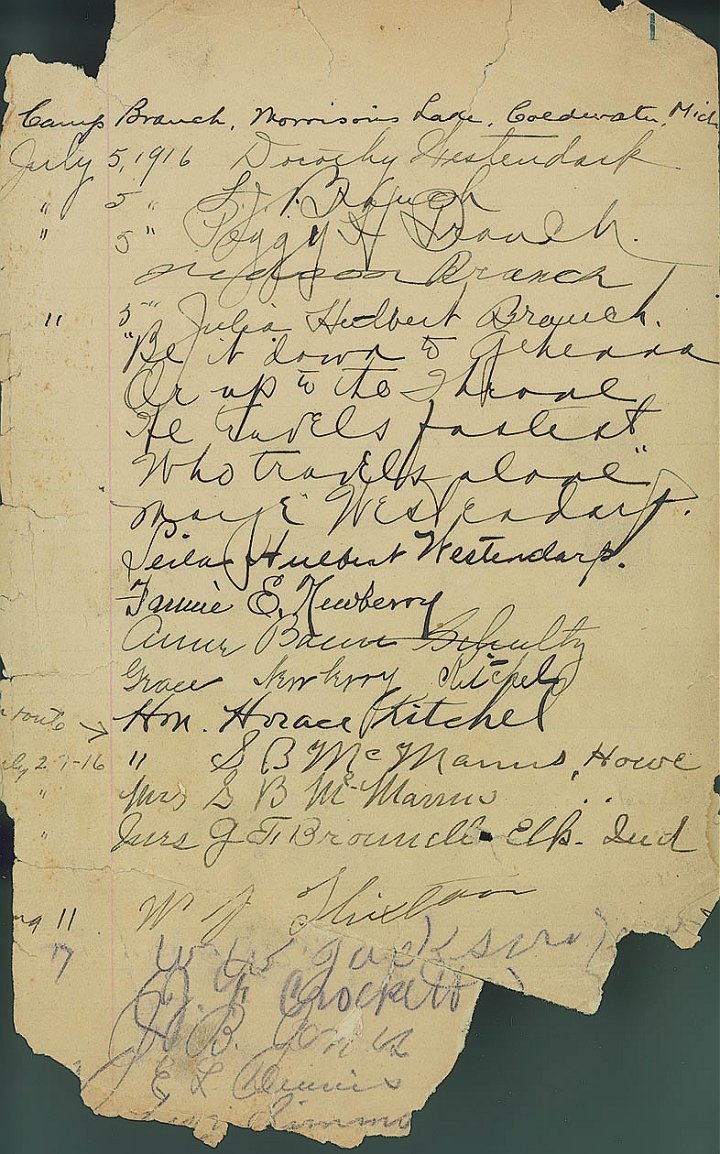 1
Camp Branch, Morrison's Lake, Coldwater, Mich
July 5, 1916 Dorothy Westendarp
" 5 "
" 5 " Peggy H Branch.
Branch
" 5 " Julia Hulbert Branch.
"Be it down to Gehenna
Or up to the Throne
He travels fastest
Who travels alone"
Westendarp.
Leila Hulbert Westendarp.
Fannie E. Newberry
Anna Schultz
Grace Newberry Kitchel
route → Hon. Horace Kitchel
-16 " S B McManus, Howe
" Mrs S B McManus "
" Mrs G. F. Brownell - Elk. Ind
11 W
7 W. W. Jackson
J. F. Crockett
B.
E L Dennis